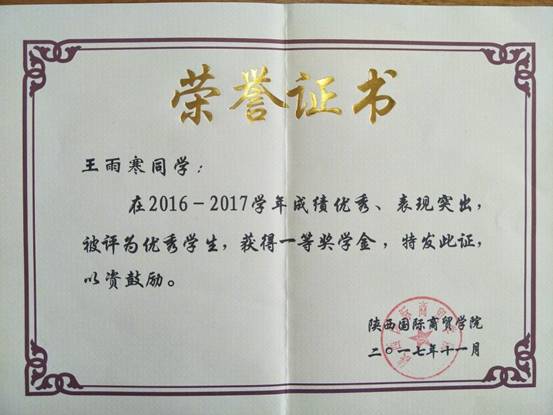 荣誉证书
王雨寒同学：
在2016－2017学年成绩优秀、表现突出，
被评为优秀学生，获得一等奖学金，特发此证，
以资鼓励。
陕西国际商贸学院
二〇一七年十一月